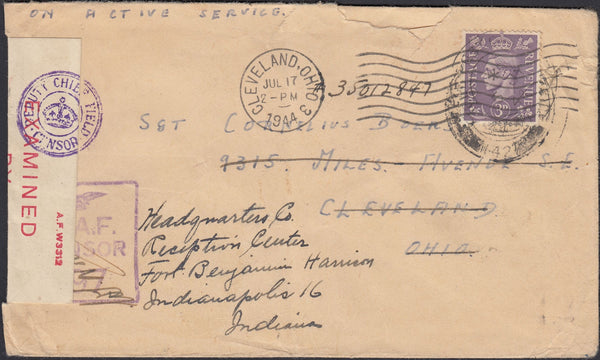 ON ACTIVE SERVICE.
CLEVELAND, OHIO 3
JUL 17
2-PM
1944
35012847
POSTAGE REVENUE
3D
DEPUTY CHIEF FIELD
CENSOR
EXAMINED
BY
A.F.W3312
A.F.
Sgt Cornelius
9315. Miles. Avenue S.E.
CLEVELAND
OHIO.
Headquarters Co.
Reception Center
Fort Benjamin Harrison
Indianapolis 16
Indiana